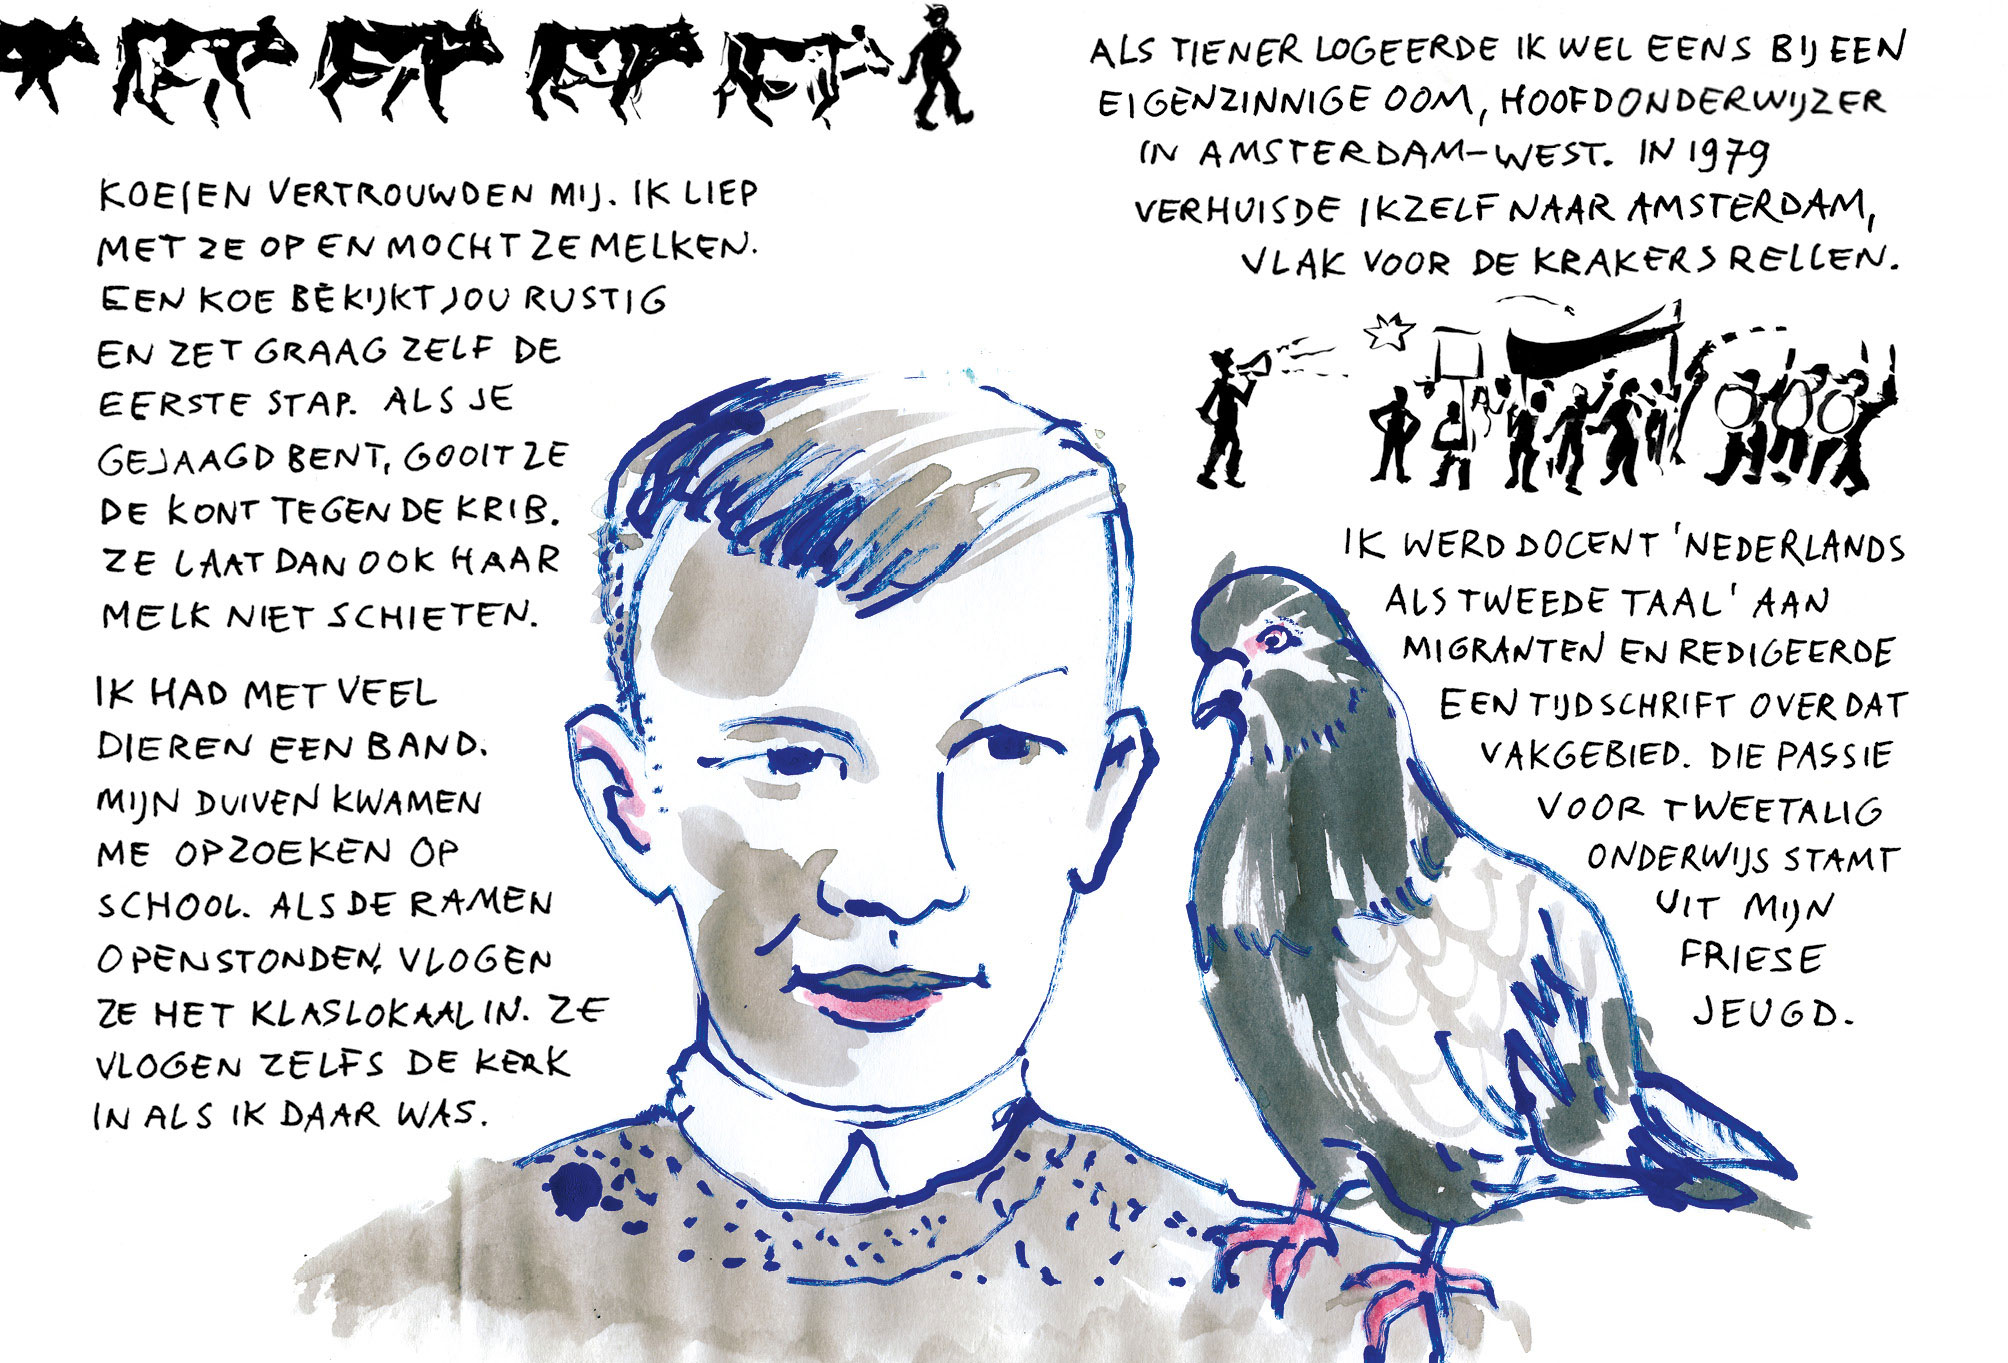 KOEIEN VERTROUWDEN MIJ. IK LIEP
MET ZE OP EN MOCHT ZE MELKEN.
EEN KOE BEKIJKT JOU RUSTIG
EN ZET GRAAG ZELF DE
EERSTE STAP. ALS JE
GEJAAGD BENT, GOOIT ZE
DE KONT TEGEN DE KRIB.
ZE LAAT DAN OOK HAAR
MELK NIET SCHIETEN.
IK HAD MET VEEL
DIEREN EEN BAND.
MIJN DUIVEN KWAMEN
ME OPZOEKEN OP
SCHOOL. ALS DE RAMEN
OPENSTONDEN, VLOGEN
ZE HET KLASLOKAAL IN. ZE
VLOGEN ZELFS DE KERK
IN ALS IK DAAR WAS.
ALS TIENER LOGEERDE IK WEL EENS BIJ EEN
EIGENZINNIGE OOM, HOOFDONDERWIJZER
IN AMSTERDAM-WEST. IN 1979
VERHUISDE IKZELF NAAR AMSTERDAM,
VLAK VOOR DE KRAKERSRELLEN.
IK WERD DOCENT 'NEDERLANDS
ALS TWEEDE TAAL' AAN
MIGRANTEN EN REDIGEERDE
EEN TIJDSCHRIFT OVER DAT
VAKGEBIED. DIE PASSIE
VOOR TWEETALIG
ONDERWIJS STAMT
UIT MIJN
FRIESE
JEUGD.